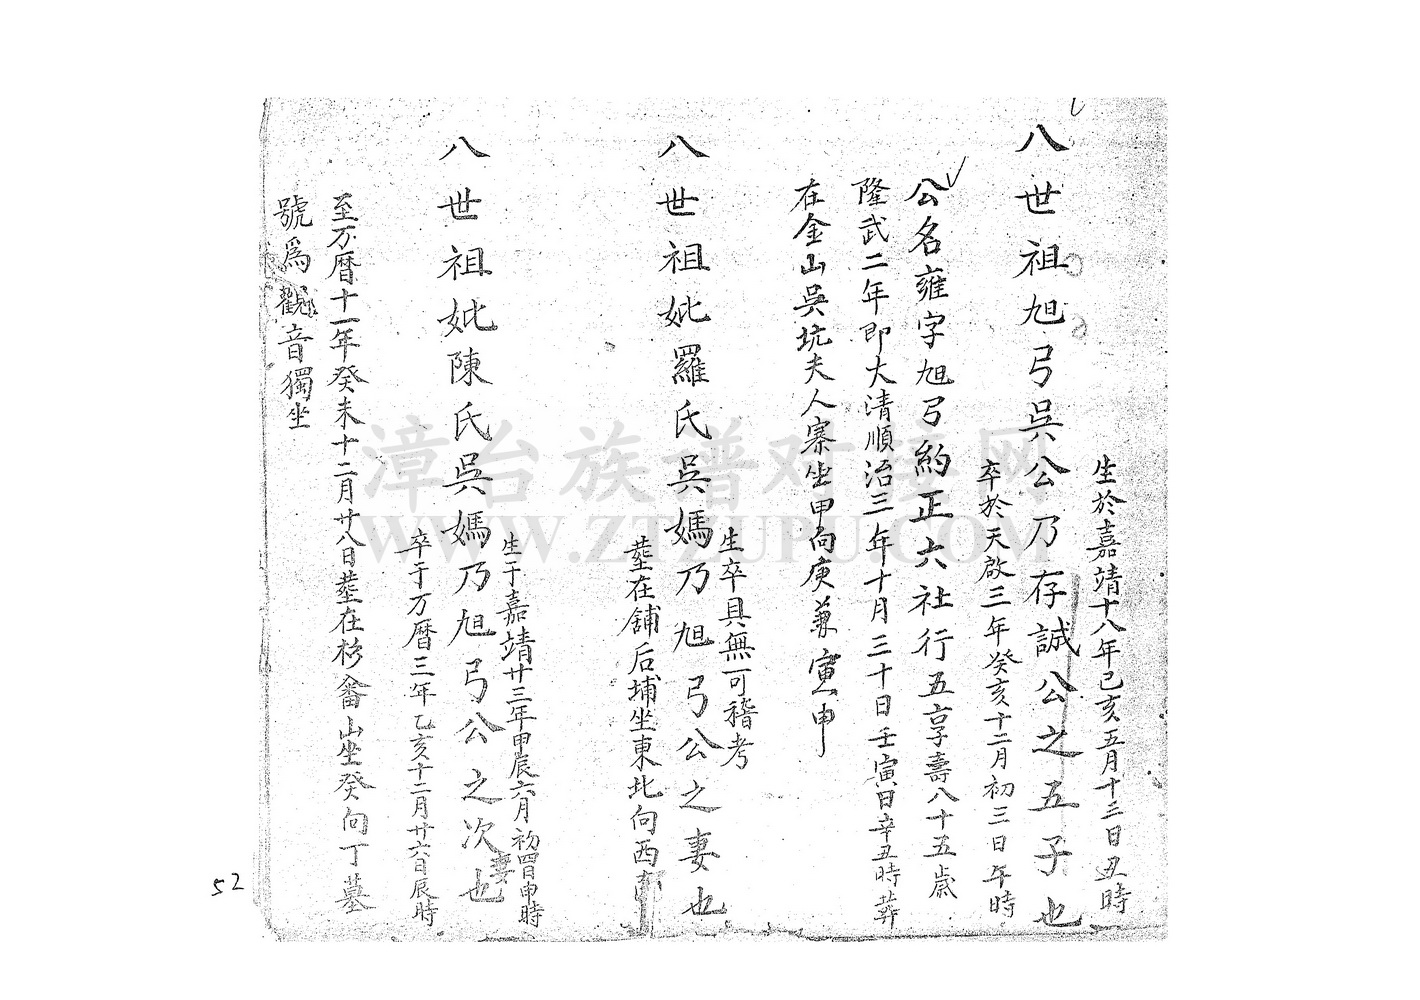 八世祖旭弓吳公乃存誠公之五子也
生於嘉靖十八年己亥五月十三日丑時
卒於天啟三年癸亥十二月初三日午時
公名雍字旭弓約正六社行五享壽八十五歲
隆武二年即大清順治三年十月三十日壬寅日辛丑時葬
在金山吳坑夫人寨坐甲向庚兼寅申
八世祖妣羅氏吳媽乃旭弓公之妻也
生卒具無可稽考
塟在舖后埔坐東北向西
八世祖妣陳氏吳媽乃旭弓公之次妻也
生于嘉靖廿三年甲辰六月初四日申時
卒于万曆三年乙亥十二月廿六日辰時
至万曆十一年癸未十二月廿八日塟在杉畬山坐癸向丁墓
號爲觀音獨坐
52
漳台族谱对接网
WWW.ZTZUPU.COM